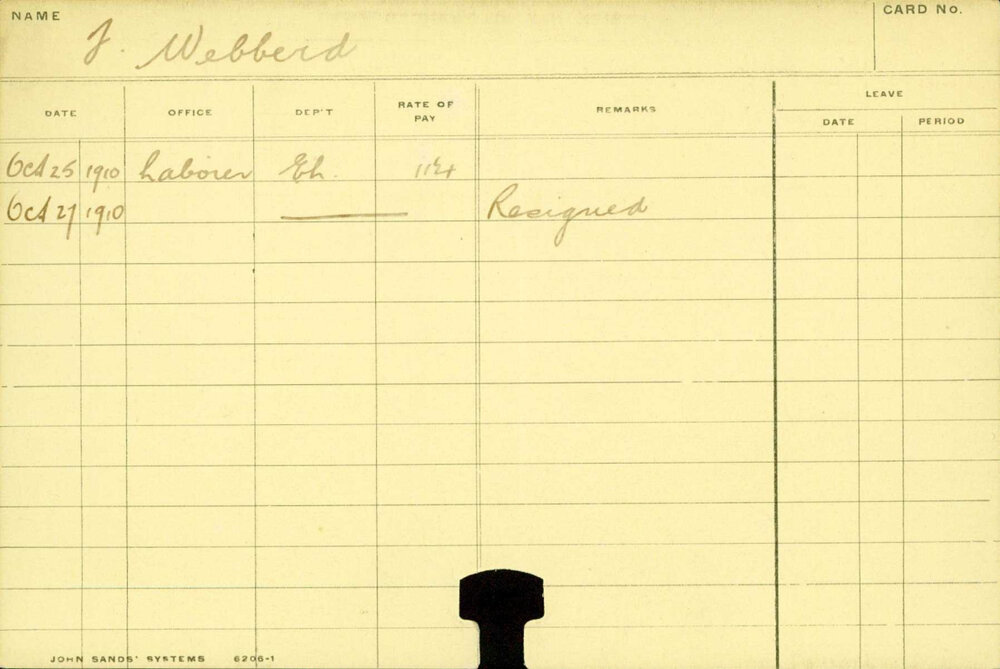 NAME
CARD No.
J. Webberd
DATE OFFICE DEP'T RATE OF PAY REMARKS LEAVE
DATE PERIOD
Oct 25 1910 Laborer Eh.
Oct 27 1910 Resigned
JOHN SANDS' SYSTEMS 6206-1